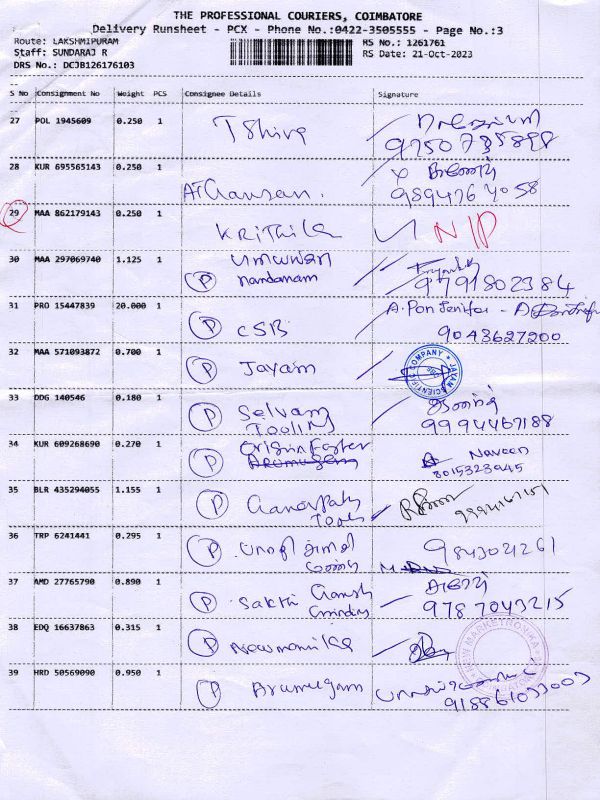 THE PROFESSIONAL COURIERS, COIMBATORE
Delivery Runsheet - PCX - Phone No.:0422-3505555 - Page No.:3
Route: LAKSHMIPURAM RS No.: 1261761
Staff: SUNDARAJ R RS Date: 21-Oct-2023
DRS No.: DCJB126176103
S No Consignment No Weight PCS Consignee Details Signature
27 POL 1945609 0.250 1 T Shiva
9750785898
28 KUR 695565143 0.250 1
9894764058
29 MAA 862179143 0.250 1 Krithika N/P
30 MAA 297069740 1.125 1
P nandanam 9791802384
31 PRO 15447839 20.000 1 P CSB A. Pon Jenifer
9043627200
32 MAA 571093872 0.700 1 P Jayam JAYAM SCIENTIFIC COMPANY
33 DDG 140546 0.180 1 P Selvam
Tooling 9994467188
34 KUR 609268690 0.270 1 P Naveen
Arumugam 8015323945
35 BLR 435294055 1.155 1 P Ganapathy
Tools
36 TRP 6241441 0.295 1 P 9843021261
37 AMD 27765790 0.890 1 P Sakthi Ganesh
Grinding 9787043215
38 EDQ 16637863 0.315 1 P Newmarktronika NEW MARKETRONIKA
39 HRD 50569090 0.950 1 P Arumugam